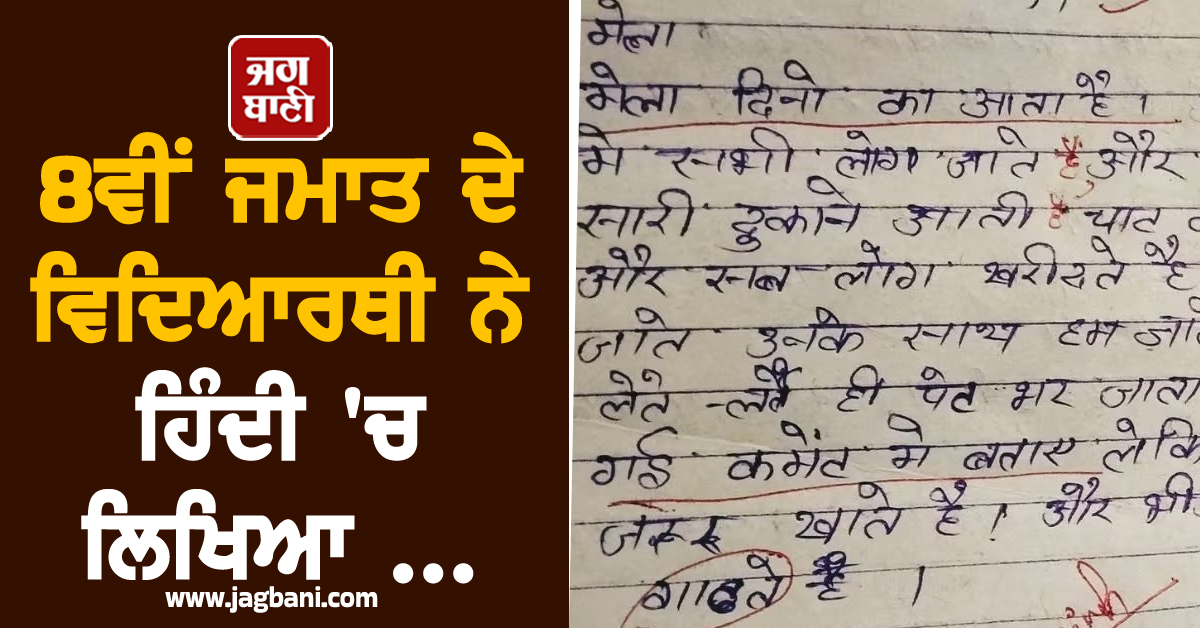 ਜਗ
ਬਾਣੀ
8ਵੀਂ ਜਮਾਤ ਦੇ
ਵਿਦਿਆਰਥੀ ਨੇ
ਹਿੰਦੀ 'ਚ
ਲਿਖਿਆ ...
www.jagbani.com
मेला
मेला दिनो का आता है।
मे सभी लोग जाते हैं, और
सारी दुकाने आती है चाट
और सब लोग खरीदते है
जाते उनके साथ हम
लेते -लेते ही पेट भर जाता
गई कमेंट मे बताए
जरूर खाते है। और भी
है ।